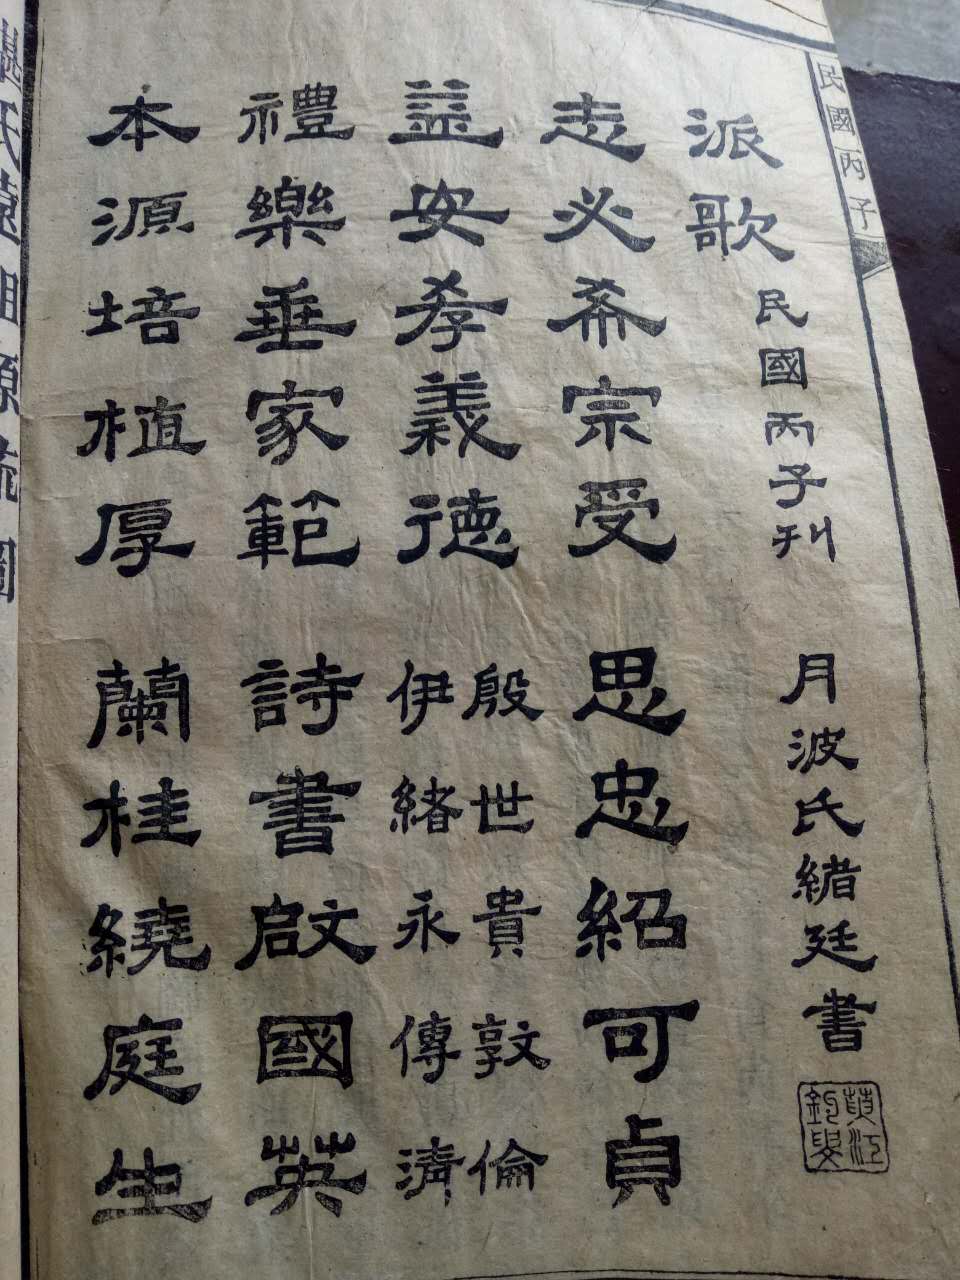 民國丙子
派歌 民國丙子刊 月波氏緒廷書
志必希宗受 思忠紹可貞
益安孝義德 殷世貴敦倫
伊緒永傳清
禮樂垂家範 詩書啟國英
本源培植厚 蘭桂繞庭生
氏遠祖源流圖